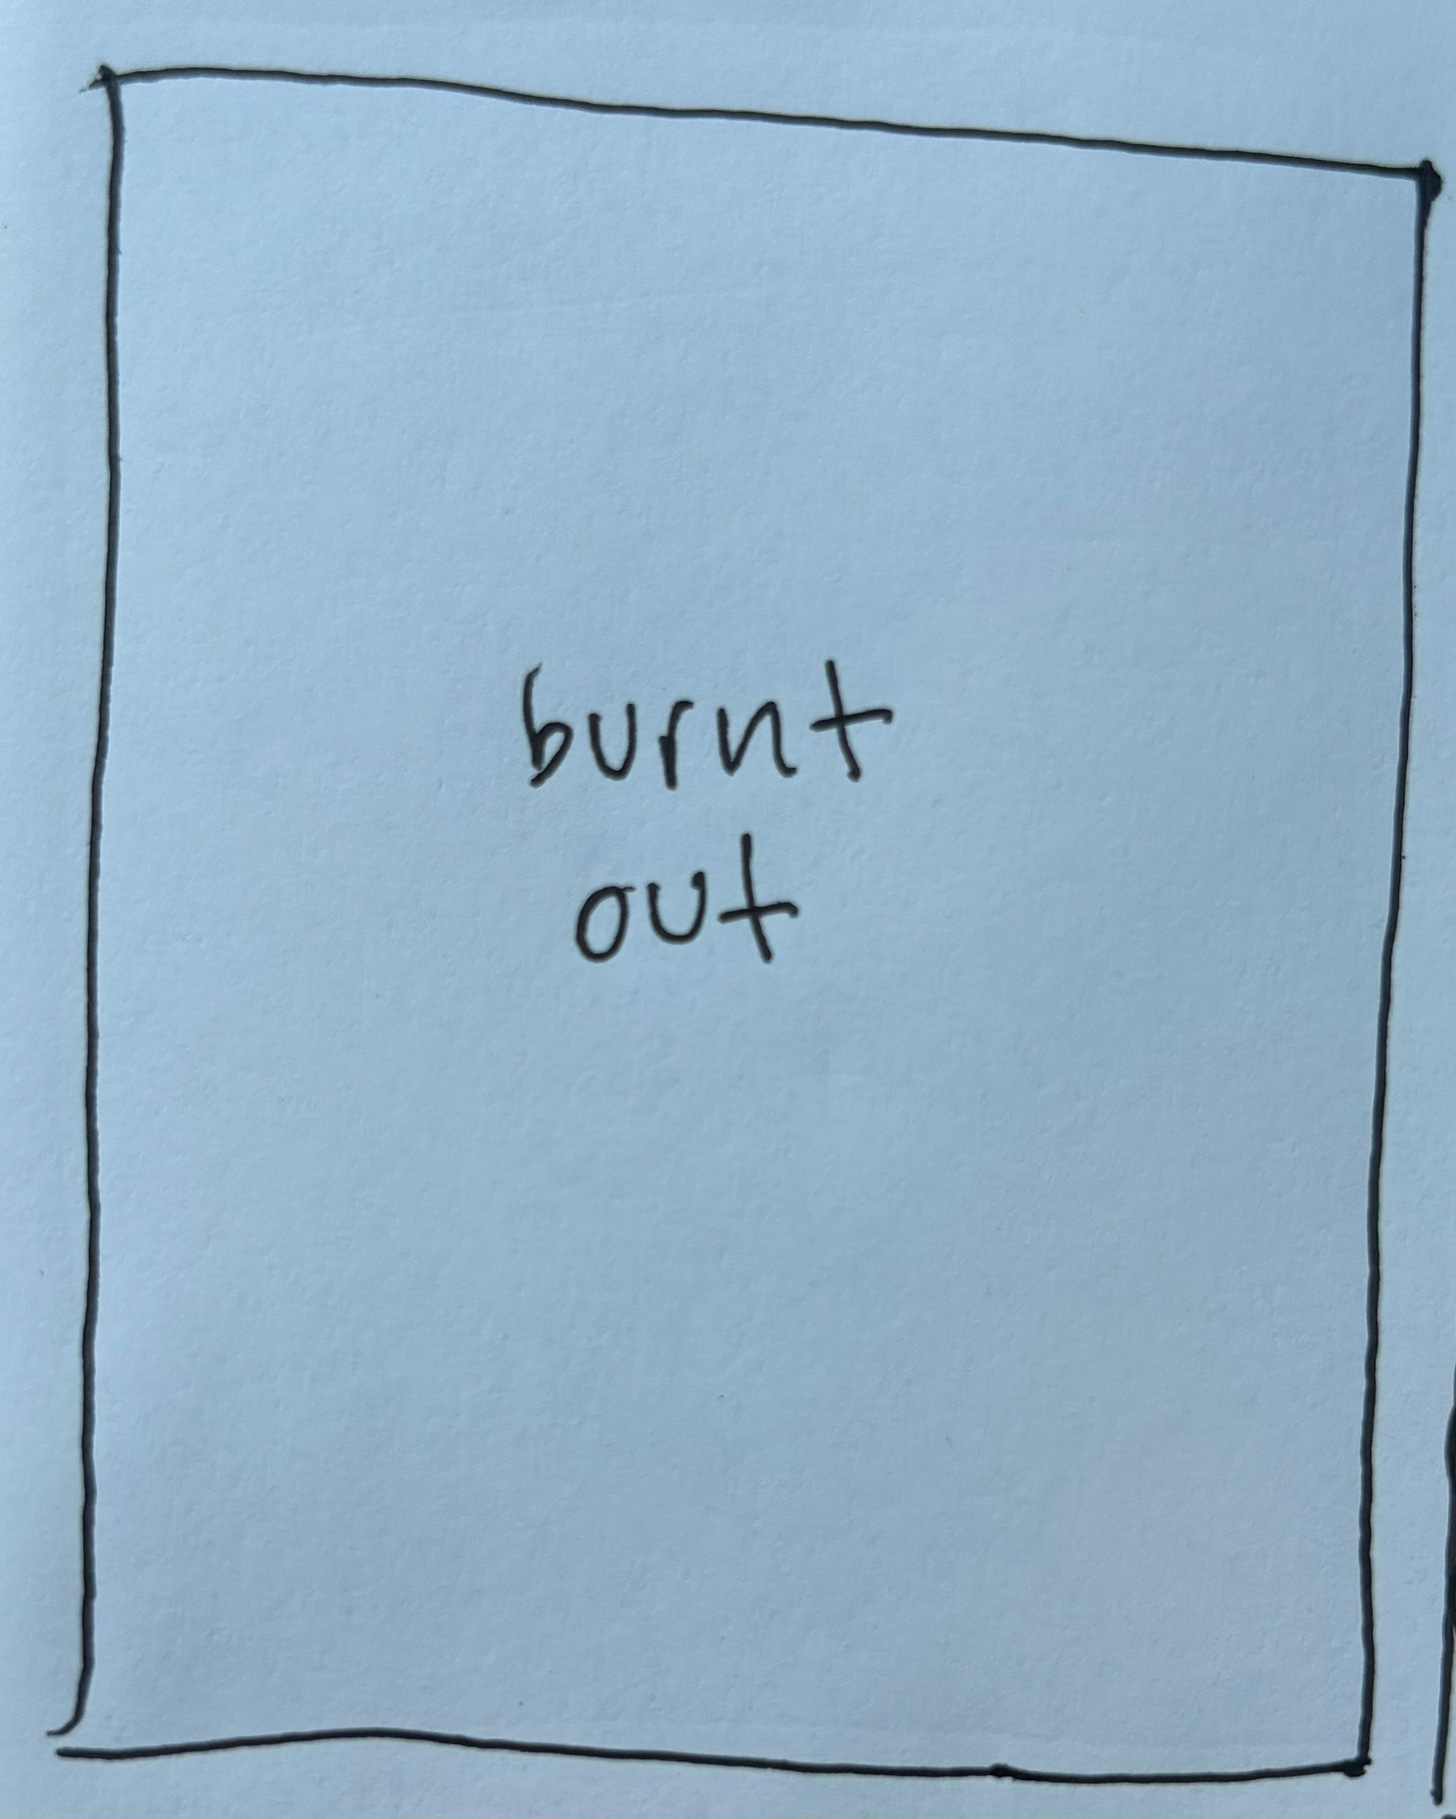 burnt
out